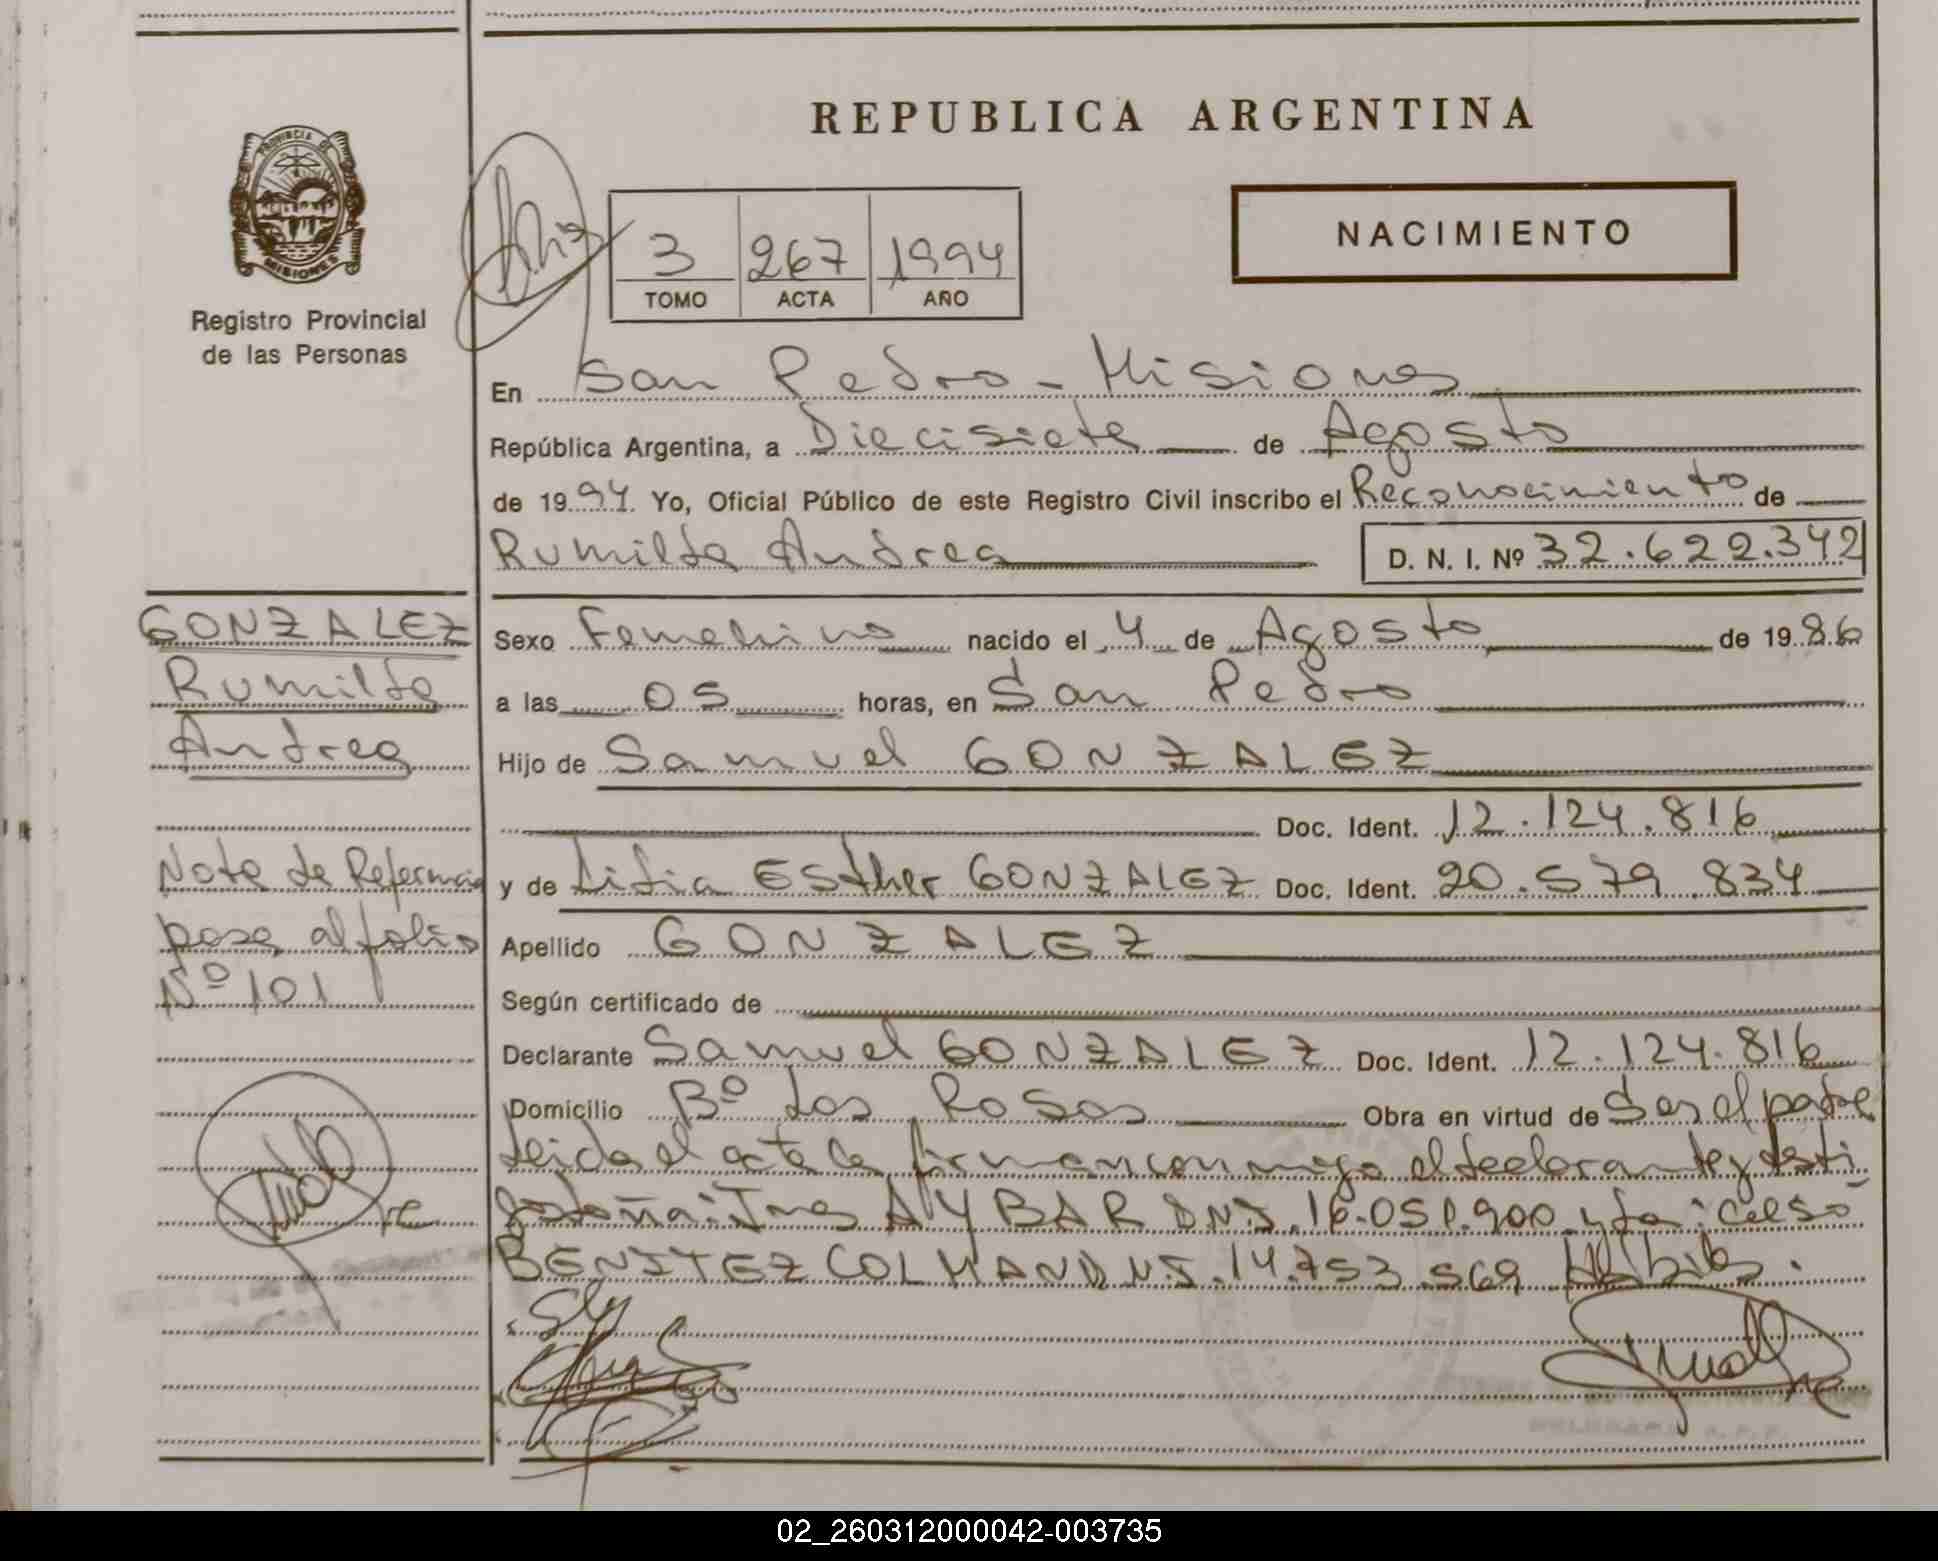 REPUBLICA ARGENTINA
PROVINCIA DE
MISIONES
Registro Provincial
de las Personas
3 267 1994
TOMO ACTA AÑO
NACIMIENTO
En San Pedro - Misiones
República Argentina, a Diecisiete de Agosto
de 1994 Yo, Oficial Público de este Registro Civil inscribo el Reconocimiento de
Rumilda Andrea D. N. I. Nº 32.622.342
GONZALEZ
Rumilda
Andrea
Nota de Referencia
pasa al folio
Nº 101
Sexo Femenino nacido el 4 de Agosto de 1986
a las 05 horas, en San Pedro
Hijo de Samuel GONZALEZ
Doc. Ident. 12.124.816
y de Lidia Esther GONZALEZ Doc. Ident. 20.579.834
Apellido GONZALEZ
Según certificado de
Declarante Samuel GONZALEZ Doc. Ident. 12.124.816
Domicilio Bº Las Rosas Obra en virtud de Ser el padre
Leida el acta la firman conmigo el declarante y testi
gos doña: Ines AYBAR DNI. 16.051.900 y don: Celso
BENITEZ COLMAN DNI. 14.753.569 Hábiles.
02_260312000042-003735